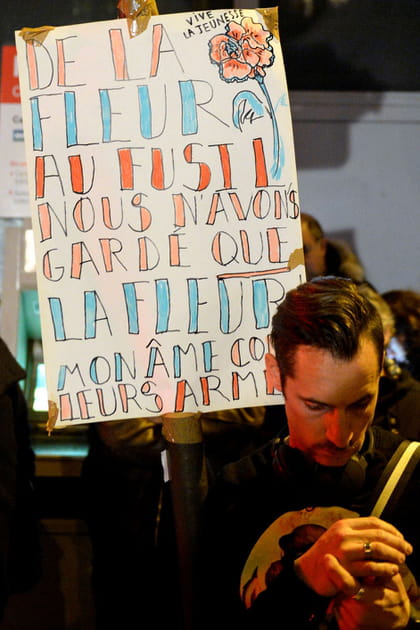 VIVE
LA JEUNESSE
DE LA
FLEUR
AU FUSIL
NOUS N'AVONS
GARDÉ QUE
LA FLEUR
MON ÂME CO
LEURS ARME